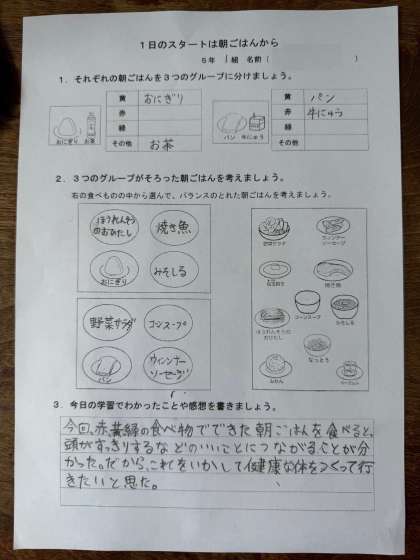 1日のスタートは朝ごはんから
5年 1組 名前( )
1．それぞれの朝ごはんを3つのグループに分けましょう。
黄 おにぎり
赤
緑
その他 お茶
おにぎり お茶
黄 パン
赤 牛にゅう
緑
その他
パン 牛にゅう
2．3つのグループがそろった朝ごはんを考えましょう。
右の食べものの中から選んで、バランスのとれた朝ごはんを考えましょう。
ほうれんそうのおひたし
焼き魚
おにぎり
みそしる
野菜サラダ
コーンスープ
パン
ウィンナーソーセージ
野菜サラダ
ウィンナーソーセージ
焼き魚
コーンスープ
みそしる
ほうれんそうのおひたし
なっとう
みかん
3．今日の学習でわかったことや感想を書きましょう。
今回、赤、黄緑の食べ物でできた朝ごはんを食べると、
頭がすっきりするなどのいいことにつながることが分
かった。だから、これをいかして健康な体をつくって行
きたいと思た。